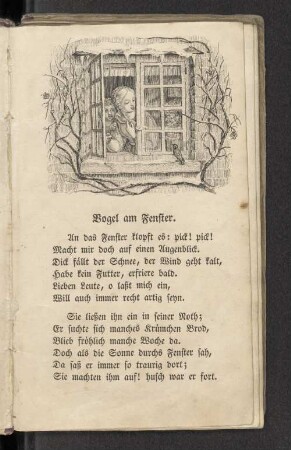 Vogel am Fenster.
An das Fenster klopft es: pick! pick!
Macht mir doch auf einen Augenblick.
Dick fällt der Schnee, der Wind geht kalt,
Habe kein Futter, erfriere bald.
Lieben Leute, o laßt mich ein,
Will auch immer recht artig seyn.
Sie ließen ihn ein in seiner Noth;
Er suchte sich manches Krümchen Brod,
Blieb fröhlich manche Woche da.
Doch als die Sonne durchs Fenster sah,
Da saß er immer so traurig dort;
Sie machten ihm auf! husch war er fort.